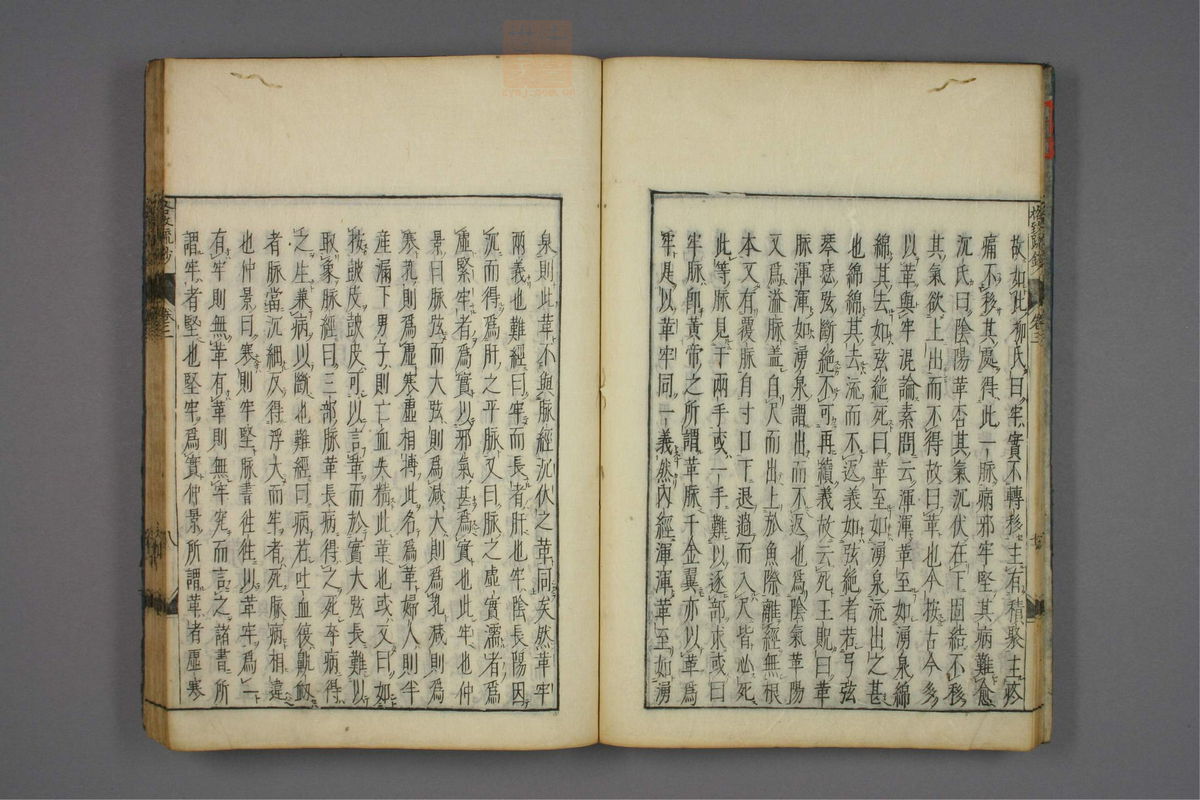 故如此柳氏曰牢實不轉移主有積聚主疼
痛不移其處得此一脉病邪牢堅其病難愈
沉氏曰陰陽革否其氣沉伏在下固結不移
其氣欲上出而不得故曰革也今按古今多
以革與牢混論素問云渾渾革至如湧泉綿
綿其去如弦絶死曰革至如湧泉流出之甚
也綿綿其去流而不返義如弦絶者若弓弦
琴瑟弦斷絶不可再續義故云死王貺曰革
脉渾渾如湧泉謂出而不返也爲陰氣革陽
又爲溢脉盖自尺而出上於魚際離經無根
本又有覆脉自寸口下退過而入尺皆必死
此等脉見于兩手或一手難以逐部求或曰
牢脉卽黃帝之所謂革脉千金翼亦以革爲
牢是以革牢同一義然內經渾渾革至如湧
泉則此革不與脉經沉伏之革同矣然革牢
兩義也難經曰牢而長者肝也牢陰長陽因
沉而得爲肝之平脉又曰脉之虛實濡者爲
虛緊牢者爲實以邪氣甚爲實也此牢也仲
景曰脉弦而大弦則爲減大則爲乳減則爲
寒乳則爲虛寒虛相搏此名爲革婦人則半
産漏下男子則亡血失精此革也或又曰如
按皷皮皷皮可以言革而於實大弦長難以
取象脉經曰三部脉革長病得之死卒病得
之生兼病以斷也難經曰病若吐血後鼽衂
者脉當沉細反得浮大而牢者死脉病相違
也仲景曰寒則牢堅脉書往往以革牢爲一
有牢則無革有革則無牢究而言之諸書所
謂牢者堅也堅牢爲實仲景所謂革者虛寒
卷三
八